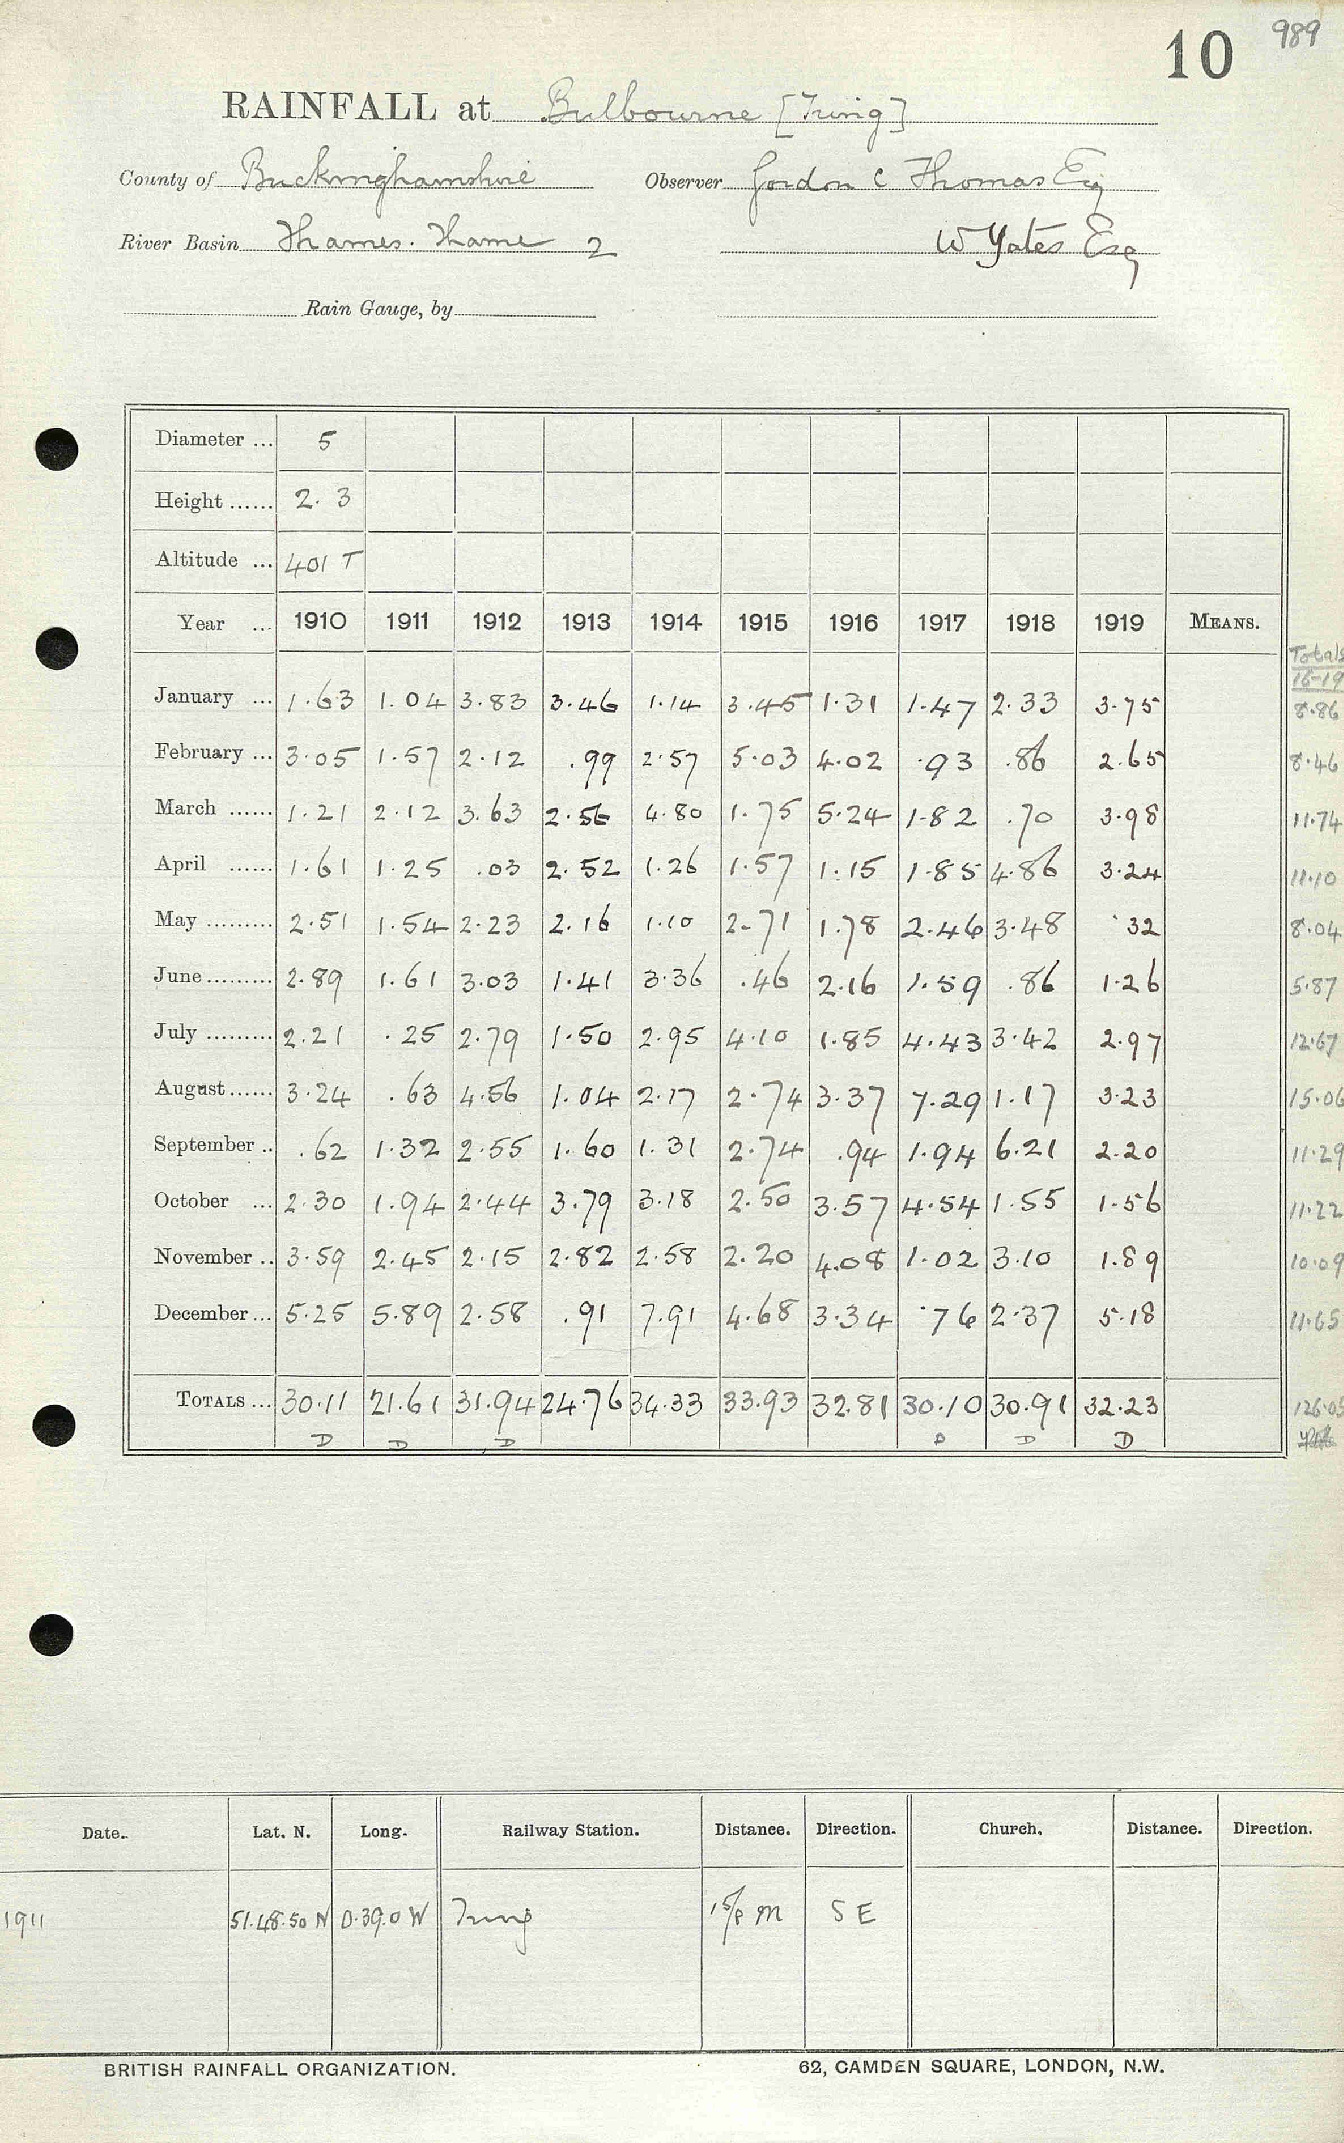 10 989
RAINFALL at Bulbourne [Tring]
County of Buckinghamshire Observer Gordon C Thomas Esq
River Basin Thames. Thame 2 W Yates Esq
Rain Gauge, by
Diameter ... 5
Height ...... 2. 3
Altitude ... 401 T
Year ... 1910 1911 1912 1913 1914 1915 1916 1917 1918 1919 MEANS.
Totals
16-19
January ... 1.63 1.04 3.83 3.46 1.14 3.45 1.31 1.47 2.33 3.75 8.86
February ... 3.05 1.57 2.12 .99 2.57 5.03 4.02 .93 .86 2.65 8.46
March ...... 1.21 2.12 3.63 2.56 4.80 1.75 5.24 1.82 .70 3.98 11.74
April ...... 1.61 1.25 .03 2.52 1.26 1.57 1.15 1.85 4.86 3.24 11.10
May ......... 2.51 1.54 2.23 2.16 1.10 2.71 1.78 2.46 3.48 .32 8.04
June ......... 2.89 1.61 3.03 1.41 3.36 .46 2.16 1.59 .86 1.26 5.87
July ......... 2.21 .25 2.79 1.50 2.95 4.10 1.85 4.43 3.42 2.97 12.67
August ...... 3.24 .63 4.56 1.04 2.17 2.74 3.37 7.29 1.17 3.23 15.06
September .. .62 1.32 2.55 1.60 1.31 2.74 .94 1.94 6.21 2.20 11.29
October ... 2.30 1.94 2.44 3.79 3.18 2.50 3.57 4.54 1.55 1.56 11.22
November .. 3.59 2.45 2.15 2.82 2.58 2.20 4.08 1.02 3.10 1.89 10.09
December ... 5.25 5.89 2.58 .91 7.91 4.68 3.34 .76 2.37 5.18 11.65
TOTALS ... 30.11 21.61 31.94 24.76 34.33 33.93 32.81 30.10 30.91 32.23 126.05
D D D D D D
Date. Lat. N. Long. Railway Station. Distance. Direction. Church. Distance. Direction.
1911 51.48.50 N 0.39.0 W Tring 1 5/8 m S E
BRITISH RAINFALL ORGANIZATION. 62, CAMDEN SQUARE, LONDON, N.W.